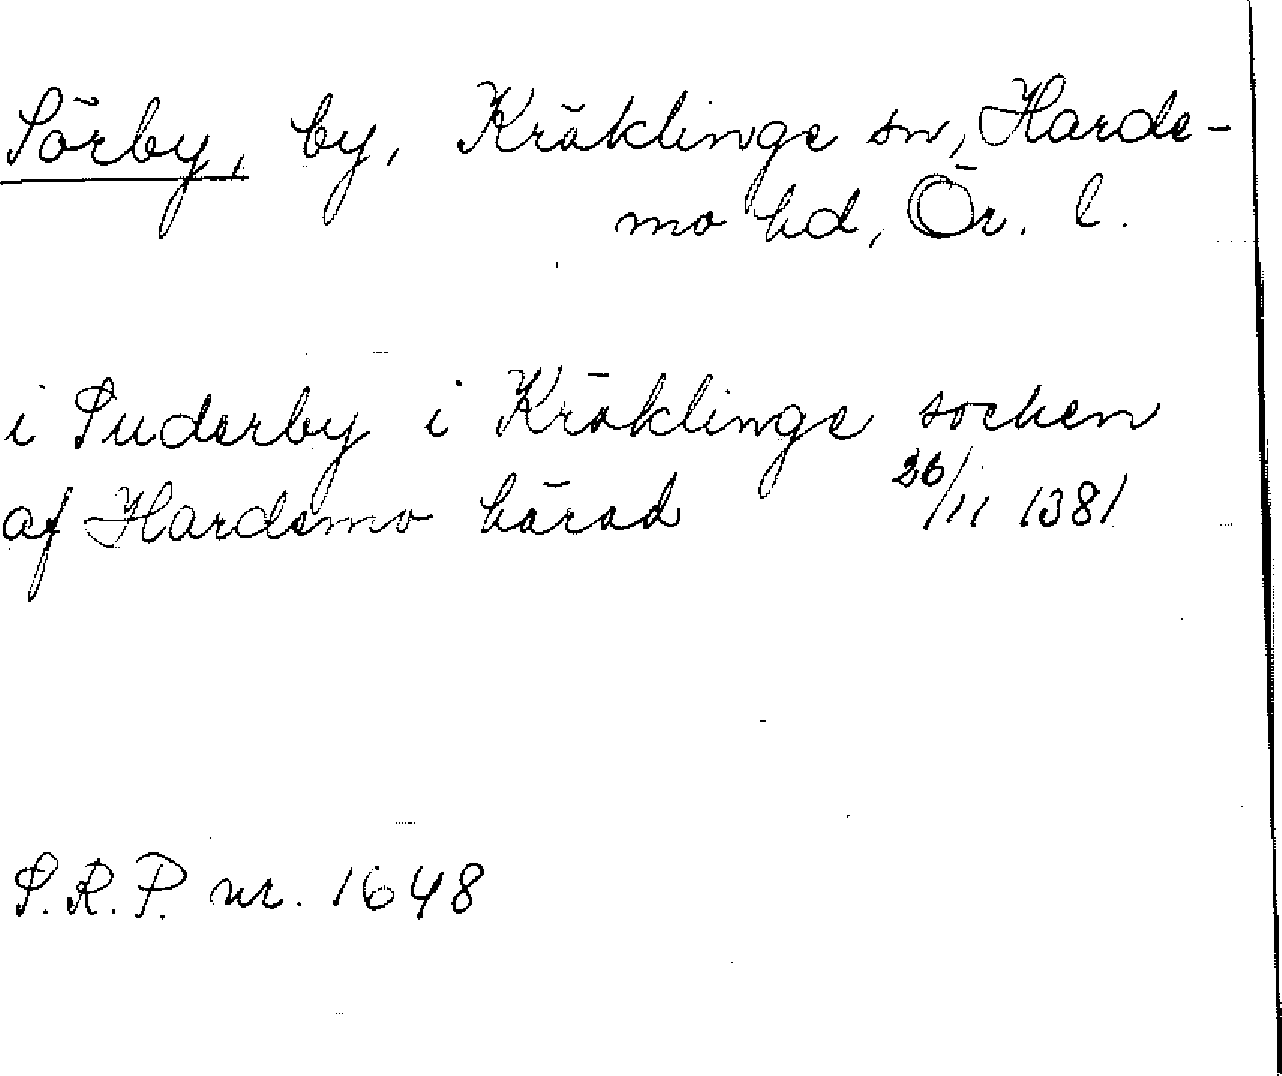 Sörby, by, Kräklinge sn, Harde-
mo hd, Ör. l.
i Suderby i Kräklinge socken
af Hardemo härad 26/11 1381
S.R.P. nr. 1648